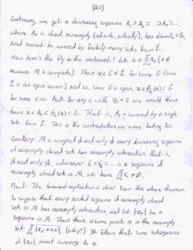 (20)
Continuing, we get a decreasing sequence A₁ ⊃ A₂ ⊃ ...,
where Aₙ is closed, nonempty (infinite, actually), has diam Aₙ <
and cannot be covered by finitely many sets from
Now here's the fly in the ointment! Let x ∈ ⋂ Aₙ (≠ ∅
because M is complete). Then x ∈ G ∈ for some G (since
is an open cover) and so, since G is open, x ∈ B_ε(x) ⊂ G
for some ε > 0. But for any n with 1/n < ε we would then
have x ∈ Aₙ ⊂ B_ε(x) ⊂ G. That is, Aₙ is covered by a single
set from! This is the contradiction we were looking for.
Corollary: M is compact if and only if every decreasing sequence
of nonempty closed sets has nonempty intersection; that is,
if and only if, whenever F₁ ⊃ F₂ ⊃ ... is a sequence of
nonempty closed sets in M, we have ⋂ Fₙ ≠ ∅.
Proof: The forward implication is clear from the above theorem.
So suppose that every nested sequence of nonempty closed
sets in M has nonempty intersection, and let (xₙ) be a
sequence in M. Then there is some point x in the nonempty
set ⋂ {xₖ : k ≥ n} (why?). It follows that some subsequence
of (xₙ) must converge to x.